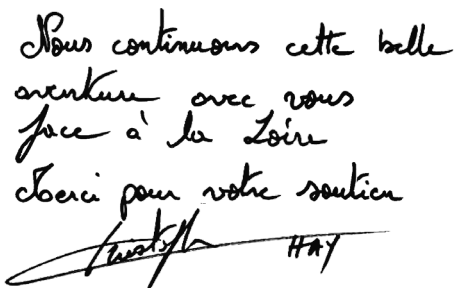 Nous continuons cette belle
aventure avec vous
face à la Loire
Merci pour votre soutien
Christophe HAY